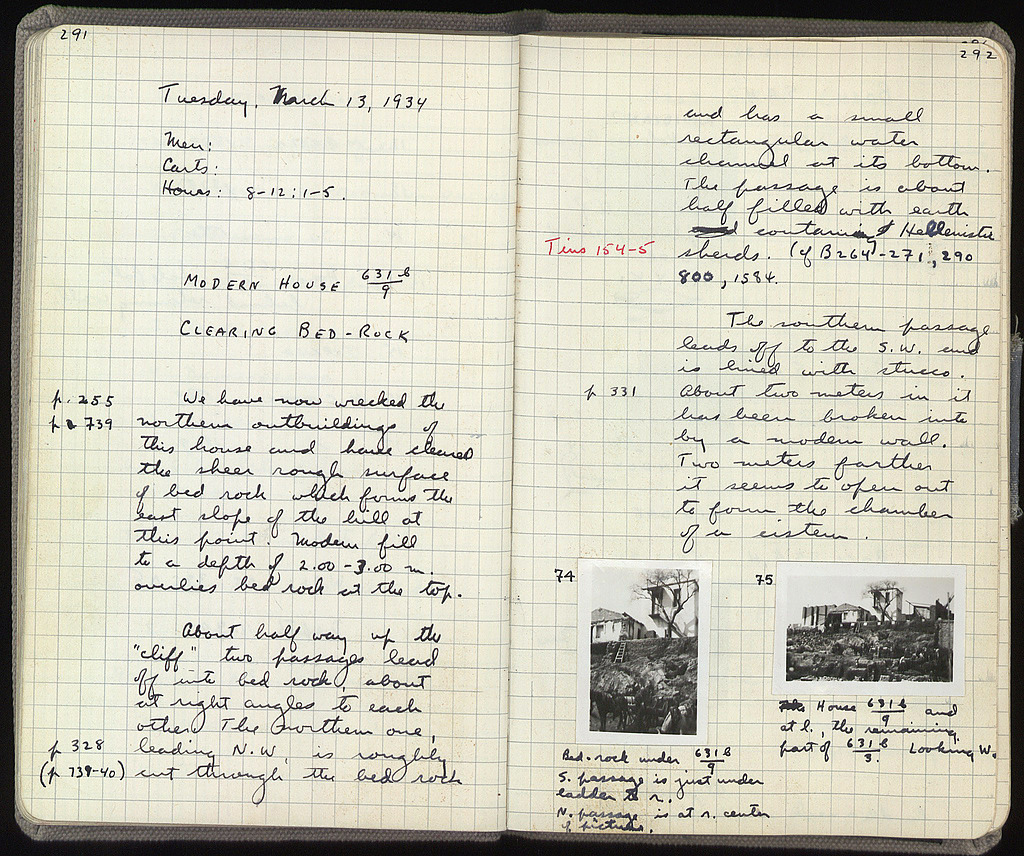 291
Tuesday, March 13, 1934
Men:
Carts:
Hours: 8-12; 1-5.
MODERN HOUSE 631 b/9
CLEARING BED-ROCK
p. 255 We have now wrecked the
p 739 northern outbuildings of
this house and have cleared
the sheer rough surface
of bed rock which forms the
east slope of the hill at
this point. Modern fill
to a depth of 2.00-3.00 m.
overlies bed rock at the top.
About half way up the
"cliff" two passages lead
off into bed rock, about
at right angles to each
other. The northern one,
p 328 leading N.W. is roughly
(p 739-40) cut through the bed rock
292
and has a small
rectangular water
channel at its bottom.
The passage is about
half filled with earth
containing Hellenistic
Tins 154-5 sherds. (cf B264-271, 290
800, 1584.
The southern passage
leads off to the S.W. and
is lined with stucco.
p 331 About two meters in it
has been broken into
by a modern wall.
Two meters farther
it seems to open out
to form the chamber
of a cistern.
74
Bed-rock under 631 b/9
S. passage is just under
ladder to r.
N. passage is at r. center
of picture.
75
House 631 b/9 and
at l., the remaining
part of 631 b/3. Looking W.